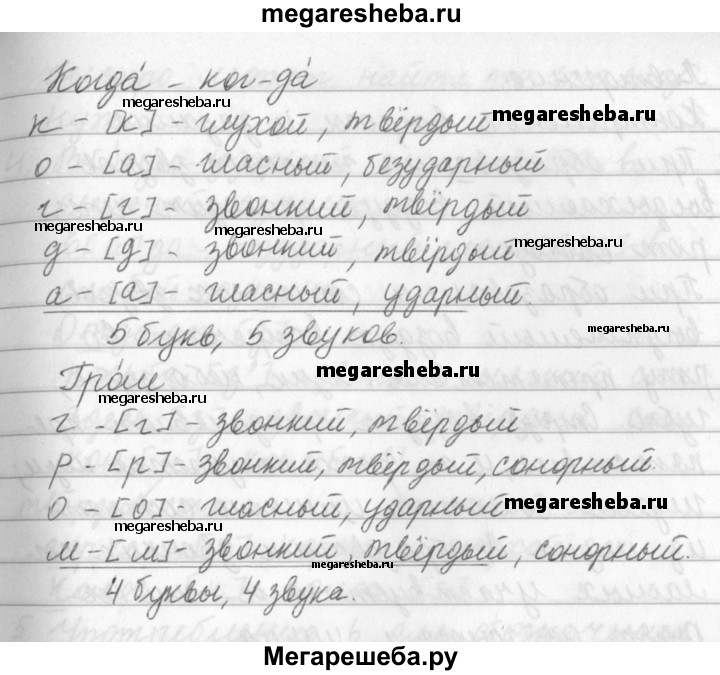 megaresheba.ru
Когда́ – ког-да́
megaresheba.ru
к – [к] – глухой, твёрдый
megaresheba.ru
о – [а] – гласный, безударный
г – [г] – звонкий, твёрдый
megaresheba.ru
megaresheba.ru
д – [д] – звонкий, твёрдый
megaresheba.ru
а – [а] – гласный, ударный.
5 букв, 5 звуков.
megaresheba.ru
Гро́м
megaresheba.ru
megaresheba.ru
г – [г] – звонкий, твёрдый
р – [р] – звонкий, твёрдый, сонорный.
о – [о] – гласный, ударный
megaresheba.ru
megaresheba.ru
м – [м] – звонкий, твёрдый, сонорный.
megaresheba.ru
4 буквы, 4 звука.
Мегарешеба.ру